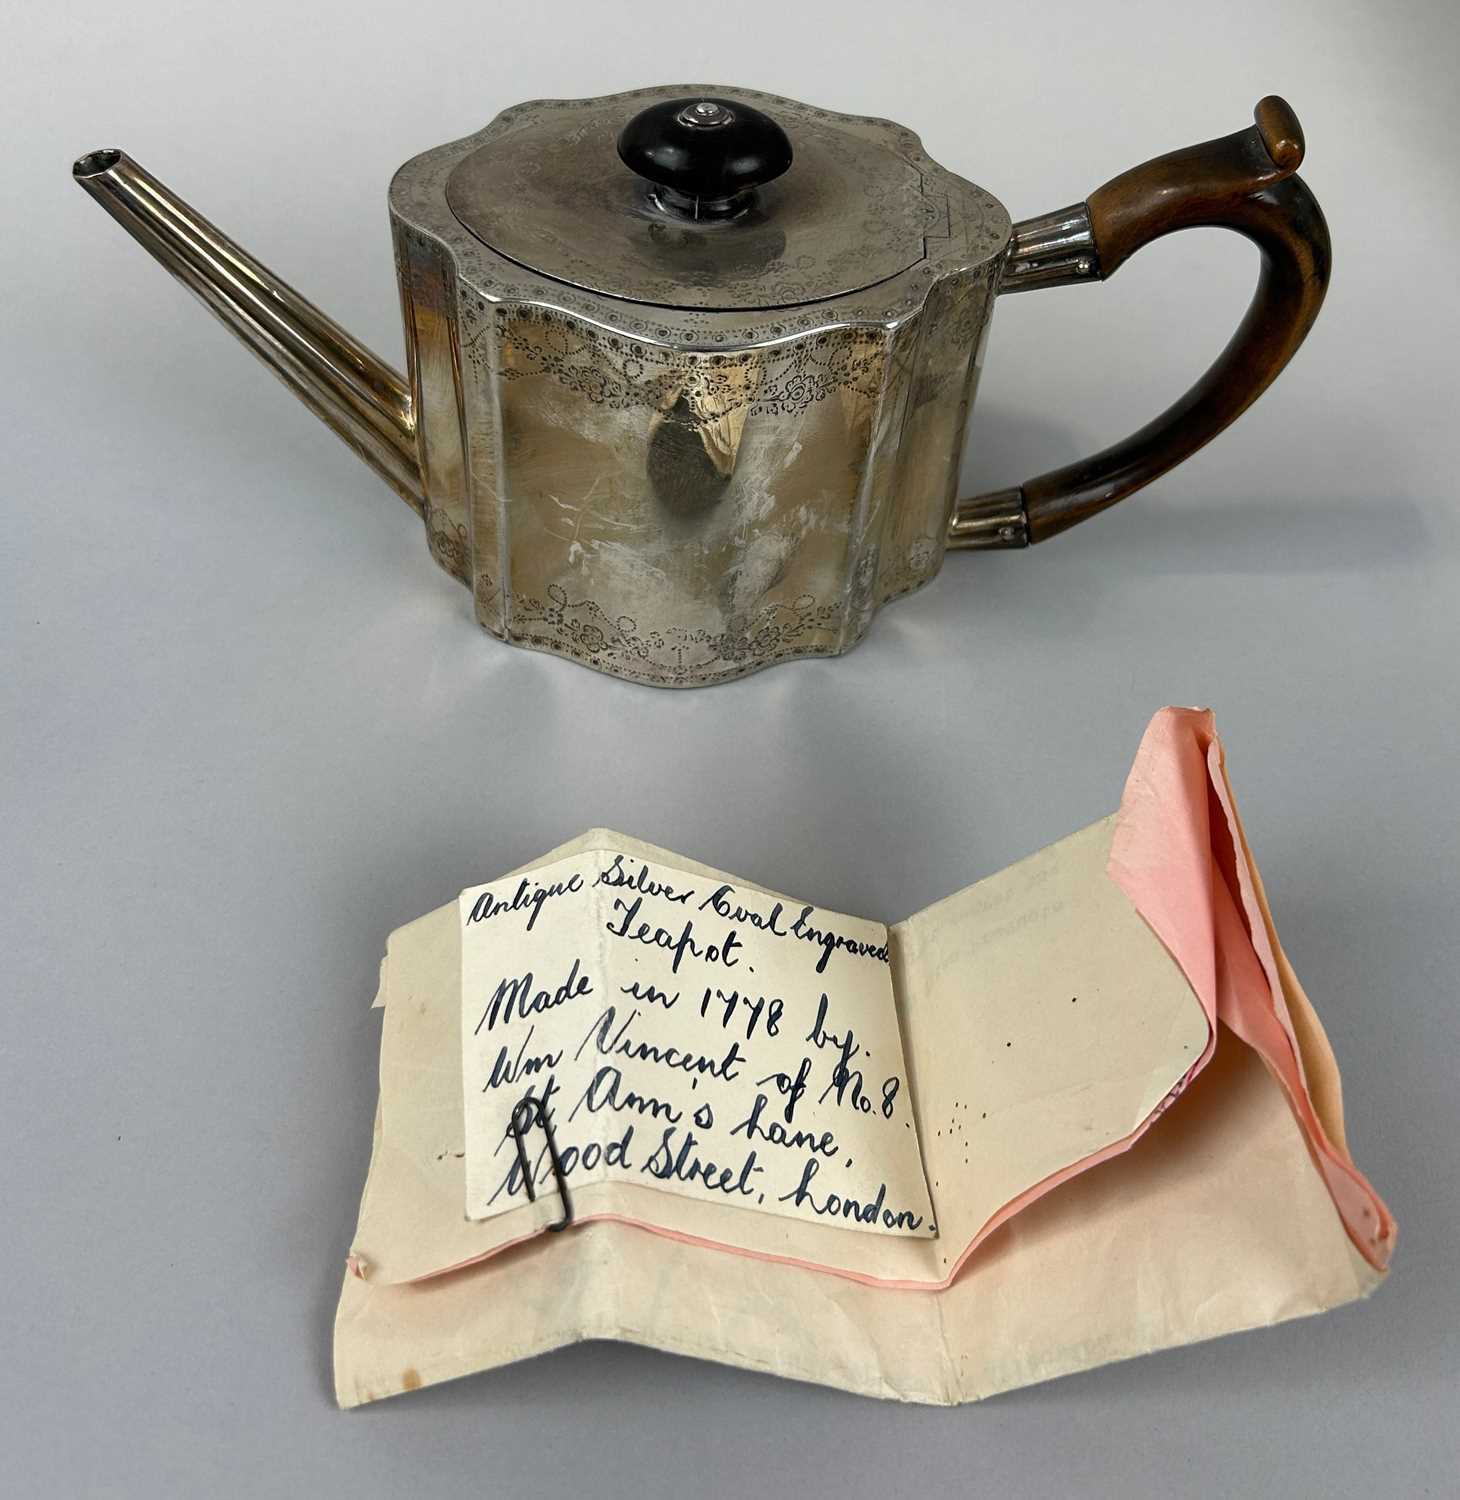 Antique Silver Oval Engraved
Teapot.
Made in 1778 by.
Wm Vincent of No. 8.
St Ann's Lane,
Wood Street, London.